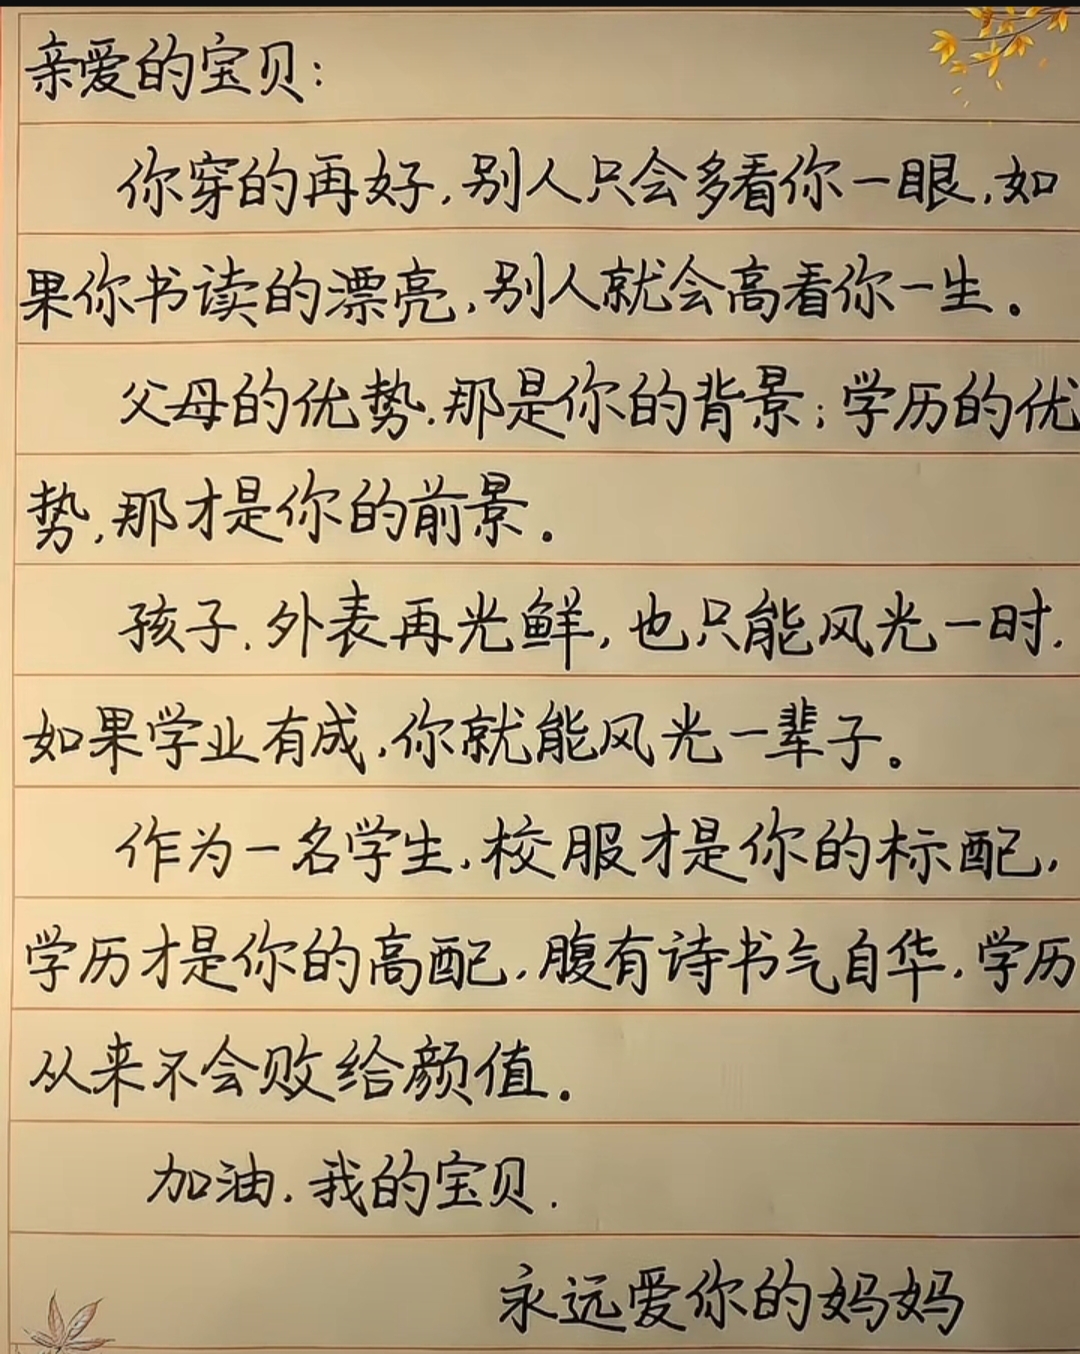 亲爱的宝贝：
你穿的再好，别人只会多看你一眼，如
果你书读的漂亮，别人就会高看你一生。
父母的优势，那是你的背景；学历的优
势，那才是你的前景。
孩子，外表再光鲜，也只能风光一时，
如果学业有成，你就能风光一辈子。
作为一名学生，校服才是你的标配，
学历才是你的高配，腹有诗书气自华，学历
从来不会败给颜值。
加油，我的宝贝．
永远爱你的妈妈